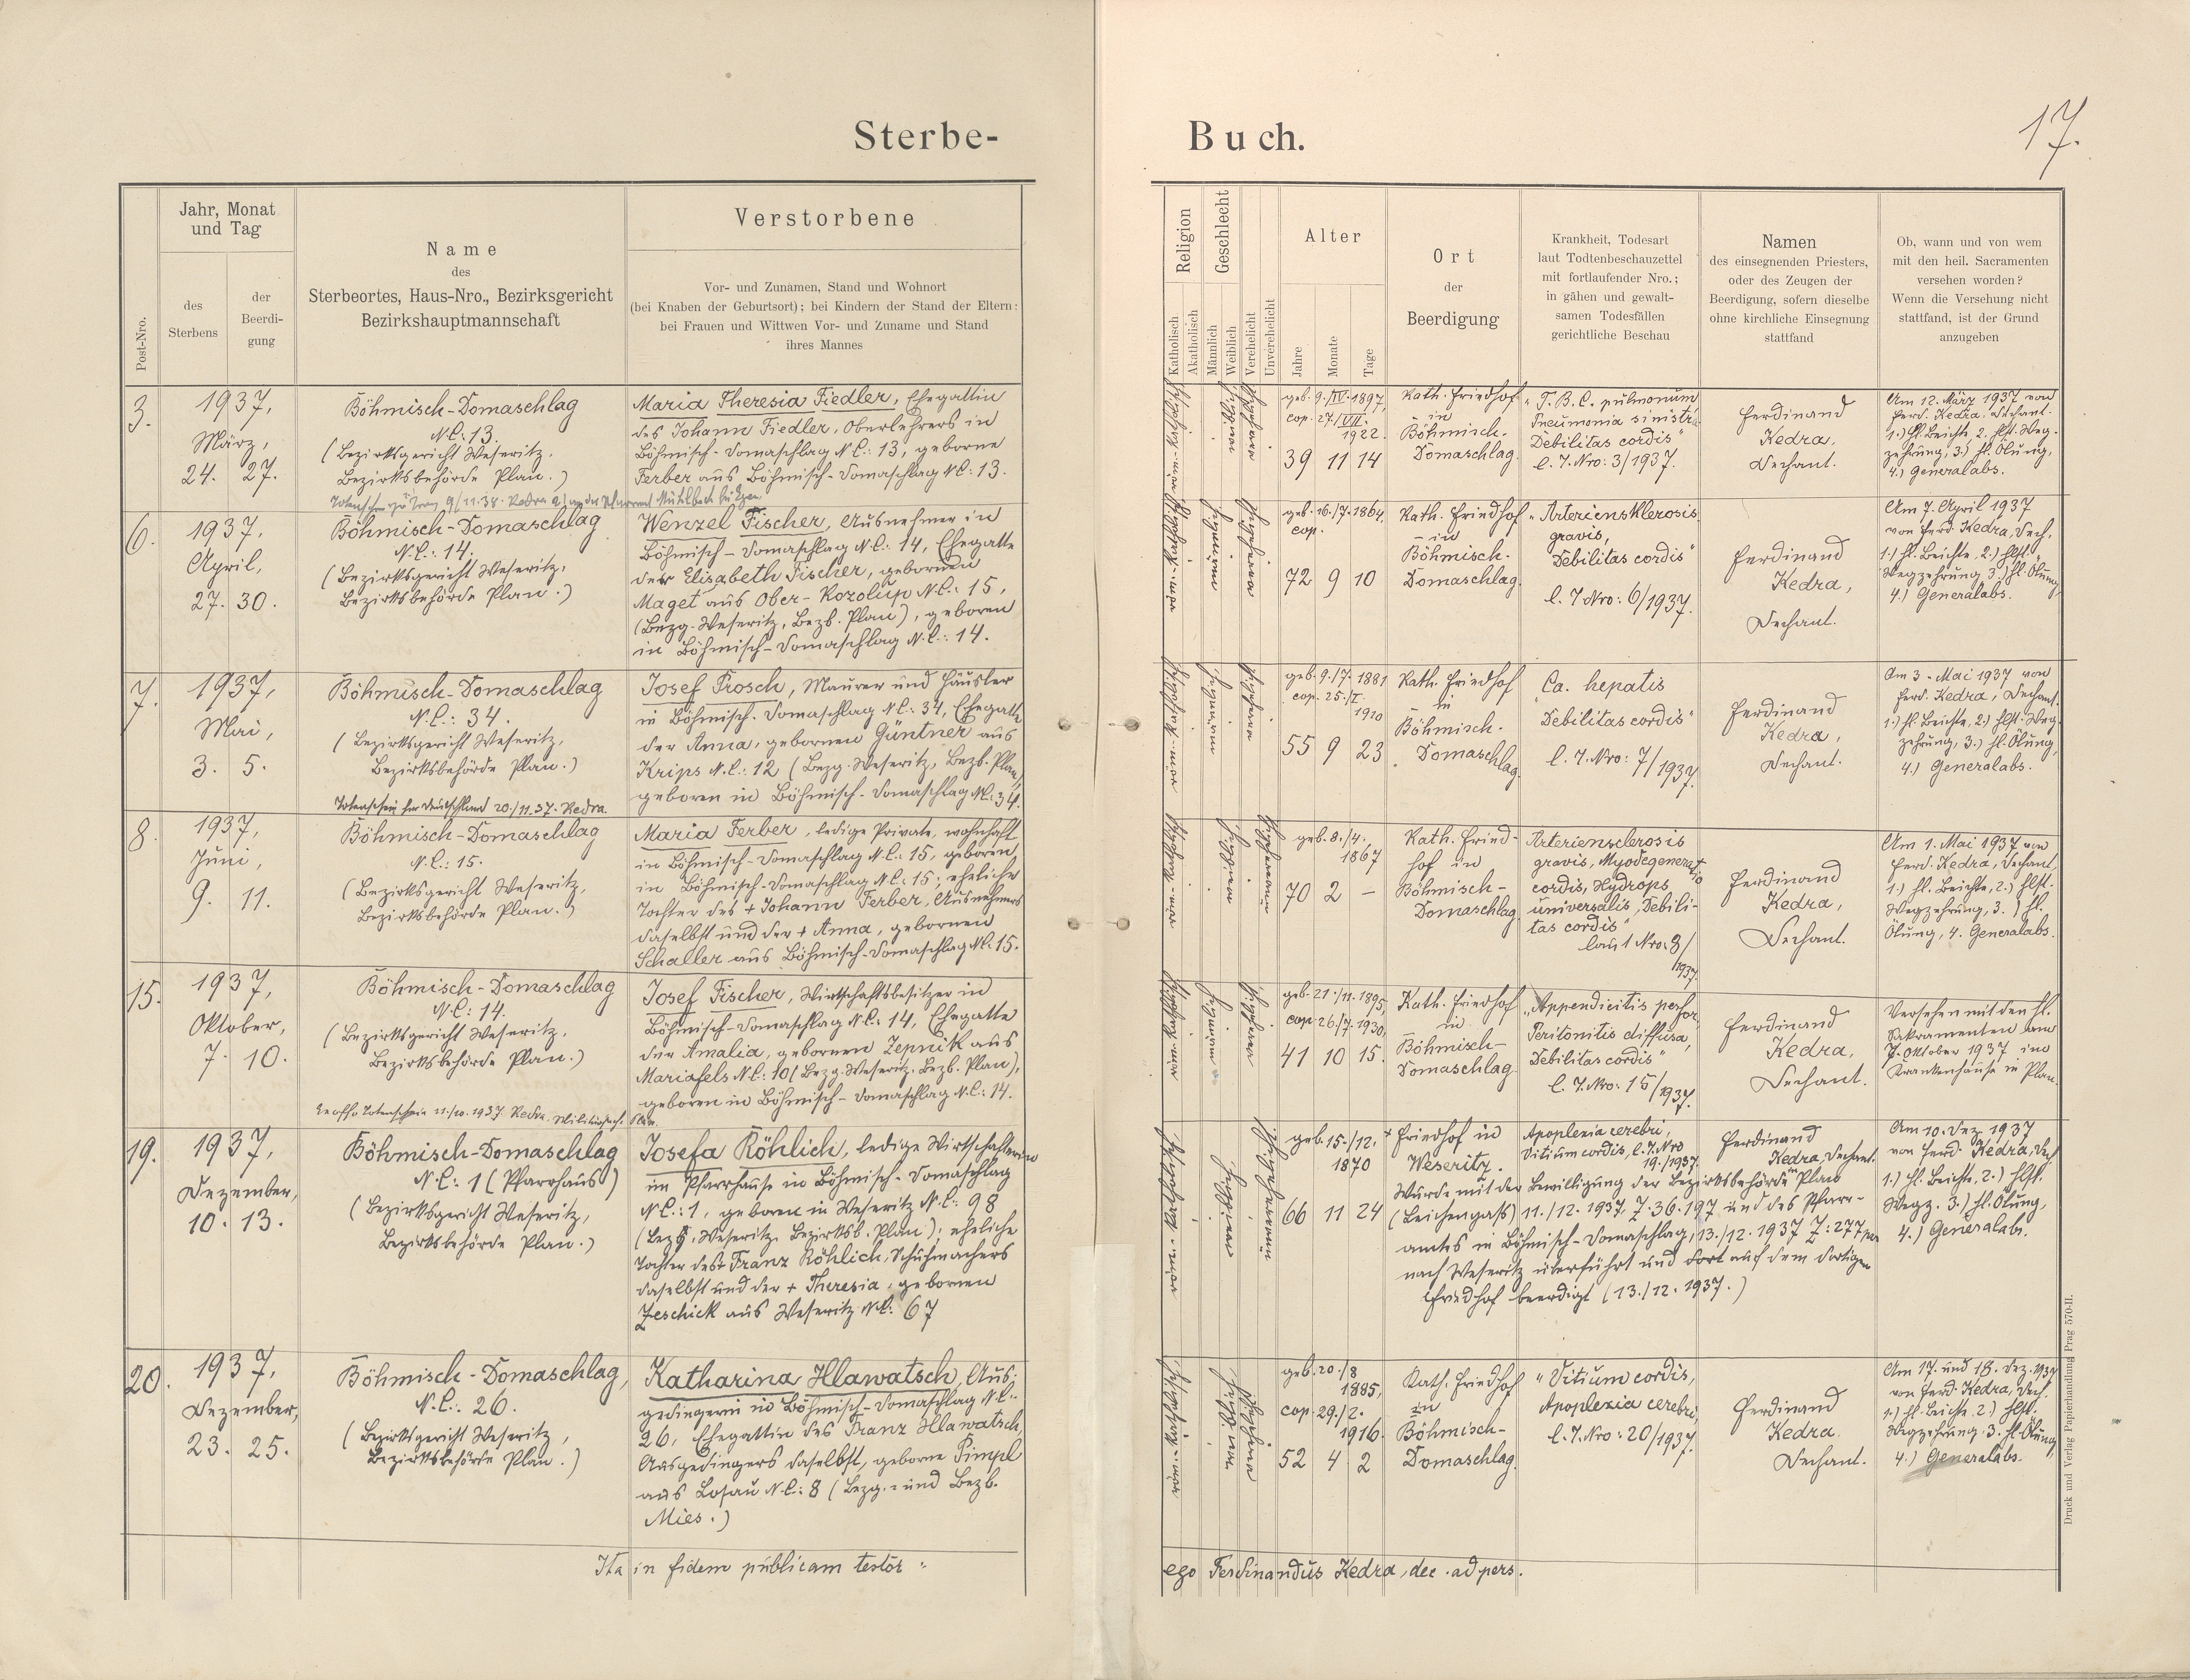 Sterbe-
Buch.
17.
Post-Nro.
Jahr, Monat
und Tag
des
Sterbens
der
Beerdi-
gung
Name
des
Sterbeortes, Haus-Nro., Bezirksgericht
Bezirkshauptmannschaft
Verstorbene
Vor- und Zunamen, Stand und Wohnort
(bei Knaben der Geburtsort); bei Kindern der Stand der Eltern:
bei Frauen und Wittwen Vor- und Zuname und Stand
ihres Mannes
Religion
Katholisch
Akatholisch
Geschlecht
Männlich
Weiblich
Verehelicht
Unverehelicht
Alter
Jahre
Monate
Tage
Ort
der
Beerdigung
Krankheit, Todesart
laut Todtenbeschauzettel
mit fortlaufender Nro.;
in gähen und gewalt-
samen Todesfällen
gerichtliche Beschau
Namen
des einsegnenden Priesters,
oder des Zeugen der
Beerdigung, sofern dieselbe
ohne kirchliche Einsegnung
stattfand
Ob, wann und von wem
mit den heil. Sacramenten
versehen worden?
Wenn die Versehung nicht
stattfand, ist der Grund
anzugeben
3.
1937,
März,
24. 27.
Böhmisch-Domaschlag
N.C.: 13.
(Bezirksgericht Weseritz,
Bezirksbehörde Plan.)
Maria Theresia Fiedler, Ehegattin
des Johann Fiedler, Oberlehrers in
Böhmisch-Domaschlag N.C.: 13, geborne
Ferber aus Böhmisch-Domaschlag N.C: 13.
geb. 9./IV. 1897,
cop. 27./VII.
1922.
39 11 14
Kath. Friedhof
in
Böhmisch-
Domaschlag.
"T.B.C. pulmonum
Pneumonia sinistra
Debilitas cordis"
l. T. Nro: 3/1937.
Ferdinand
Kedra,
Dechant.
Am 12. März 1937 von
Ferd. Kedra, Dechant.
1.) hl. Beichte, 2. hlst. Weg-
zehrung, 3.) hl. Ölung,
4.) Generalabs.
6.
1937,
April,
27. 30.
Böhmisch-Domaschlag
N.C.: 14.
(Bezirksgericht Weseritz,
Bezirksbehörde Plan.)
Wenzel Fischer, Ausnehmer in
Böhmisch-Domaschlag N.C.: 14, Ehegatte
der Elisabeth Fischer, gebornen
Maget aus Ober-Kozolup N.C.: 15,
(Bezg. Weseritz, Bezb. Plan), geboren
in Böhmisch-Domaschlag N.C.: 14.
geb. 16./7. 1864,
cop.
72 9 10
Kath. Friedhof
in
Böhmisch-
Domaschlag.
"Arteriensklerosis
gravis,
Debilitas cordis"
l. T. Nro: 6/1937.
Ferdinand
Kedra,
Dechant.
Am 7. April 1937
von Ferd. Kedra, Dech.
1.) hl. Beichte, 2.) hlst.
Wegzehrung 3.) hl. Ölung
4.) Generalabs.
7.
1937,
Mai,
3. 5.
Böhmisch-Domaschlag
N.C.: 34.
(Bezirksgericht Weseritz,
Bezirksbehörde Plan.)
Totenschein für Deutschland 20./11. 37. Kedra.
Josef Prosch, Maurer und Häusler
in Böhmisch-Domaschlag N.C.: 34, Ehegatte
der Anna, gebornen Güntner aus
Krips N.C.: 12 (Bezg. Weseritz, Bezb. Plan)
geboren in Böhmisch-Domaschlag N.C.: 34.
geb. 9./7. 1881
cop. 25./I.
1910
55 9 23
Kath. Friedhof
in
Böhmisch-
Domaschlag.
"Ca. hepatis
Debilitas cordis"
l. T. Nro: 7/1937.
Ferdinand
Kedra,
Dechant.
Am 3. Mai 1937 von
Ferd. Kedra, Dechant.
1.) hl. Beichte, 2.) hlst. Weg-
zehrung, 3.) hl. Ölung,
4.) Generalabs.
8.
1937,
Juni,
9. 11.
Böhmisch-Domaschlag
N.C.: 15.
(Bezirksgericht Weseritz,
Bezirksbehörde Plan.)
Maria Ferber, ledige Private, wohnhaft
in Böhmisch-Domaschlag N.C.: 15, geboren
in Böhmisch-Domaschlag N.C.: 15; eheliche
Tochter des + Johann Ferber, Ausnehmers
daselbst und der + Anna, gebornen
Schaller aus Böhmisch-Domaschlag N.C. 15.
geb. 8./4.
1867
70 2 –
Kath. Fried-
hof in
Böhmisch-
Domaschlag.
Arteriensclerosis
gravis, Myodegeneratio
cordis, Hydrops
universalis, Debili-
tas cordis"
laut Nro: 8/
1937.
Ferdinand
Kedra,
Dechant.
Am 1. Mai 1937 von
Ferd. Kedra, Dechant,
1.) hl. Beichte, 2.) hlst.
Wegzehrung, 3.) hl.
Ölung, 4. Generalabs.
15.
1937,
Oktober,
7. 10.
Böhmisch-Domaschlag
N.C: 14.
(Bezirksgericht Weseritz,
Bezirksbehörde Plan.)
Josef Fischer, Wirtschaftsbesitzer in
Böhmisch-Domaschlag N.C.: 14, Ehegatte
der Amalia, gebornen Zepnik aus
Mariafels N.C.: 10 (Bezg. Weseritz, Bezb. Plan),
geboren in Böhmisch-Domaschlag N.C.: 14.
geb. 21./11. 1895,
cop. 26./7. 1930,
41 10 15.
Kath. Friedhof
in
Böhmisch-
Domaschlag.
"Appendicitis perfor.
Peritonitis diffusa,
Debilitas cordis"
l. T. Nro: 15/1937.
Ferdinand
Kedra,
Dechant.
Versehen mit den hl.
Sakramenten am
7. Oktober 1937 im
Krankenhause in Plan.
19.
1937,
Dezember,
10. 13.
Böhmisch-Domaschlag
N.C.: 1 (Pfarrhaus)
(Bezirksgericht Weseritz,
Bezirksbehörde Plan.)
Josefa Röhlich, ledige Wirtschafterin
im Pfarrhause in Böhmisch-Domaschlag
N.C.: 1, geboren in Weseritz N.C.: 98
(Bezg. Weseritz, Bezirksb. Plan); eheliche
Tochter des + Franz Röhlich, Schuhmachers
daselbst und der + Theresia, gebornen
Zeschick aus Weseritz N.C.: 67
geb. 15./12.
1870
66 11 24
+ Friedhof in
Weseritz.
Apoplexia cerebri,
Vitium cordis, l. T. Nro
19./1937
Ferdinand
Kedra, Dechant.
Wurde mit der Bewilligung der Bezirksbehörde in Plan
(Leichenpass) 11./12. 1937, Z. 36.197 und des Pfarr-
amtes in Böhmisch-Domaschlag, 13./12. 1937 Z: 277
nach Weseritz überführt und dort auf dem dortigen
Friedhof beerdigt (13./12. 1937.)
Am 10. Dez. 1937
von Ferd. Kedra, Dech.
1.) hl. Beichte, 2.) hlst.
Wegz. 3.) hl. Ölung,
4.) Generalabs.
20.
1937,
Dezember,
23. 25.
Böhmisch-Domaschlag,
N.C.: 26.
(Bezirksgericht Weseritz,
Bezirksbehörde Plan.)
Katharina Hlawatsch, Aus-
gedingerin in Böhmisch-Domaschlag N.C.:
26, Ehegattin des Franz Hlawatsch,
Ausgedingers daselbst, geborne Pimpl
aus Losau N.C.: 8 (Bezg.- und Bezb.
Mies.)
geb. 20./8
1885,
cop. 29./2.
1916.
52 4 2
Kath. Friedhof
in
Böhmisch-
Domaschlag.
"Vitium cordis,
Apoplexia cerebri,
l. T. Nro: 20/1937.
Ferdinand
Kedra.
Dechant.
Am 17. und 18. Dez. 1937
von Ferd. Kedra, Dech.
1.) hl. Beichte 2.) hlst.
Wegzehrung. 3. hl. Ölung,
4.) Generalabs.
Ita in fidem publicam testor:
ego Ferdinandus Kedra, dec. ad pers.
Druck und Verlag Papierhandlung Prag 570-II.